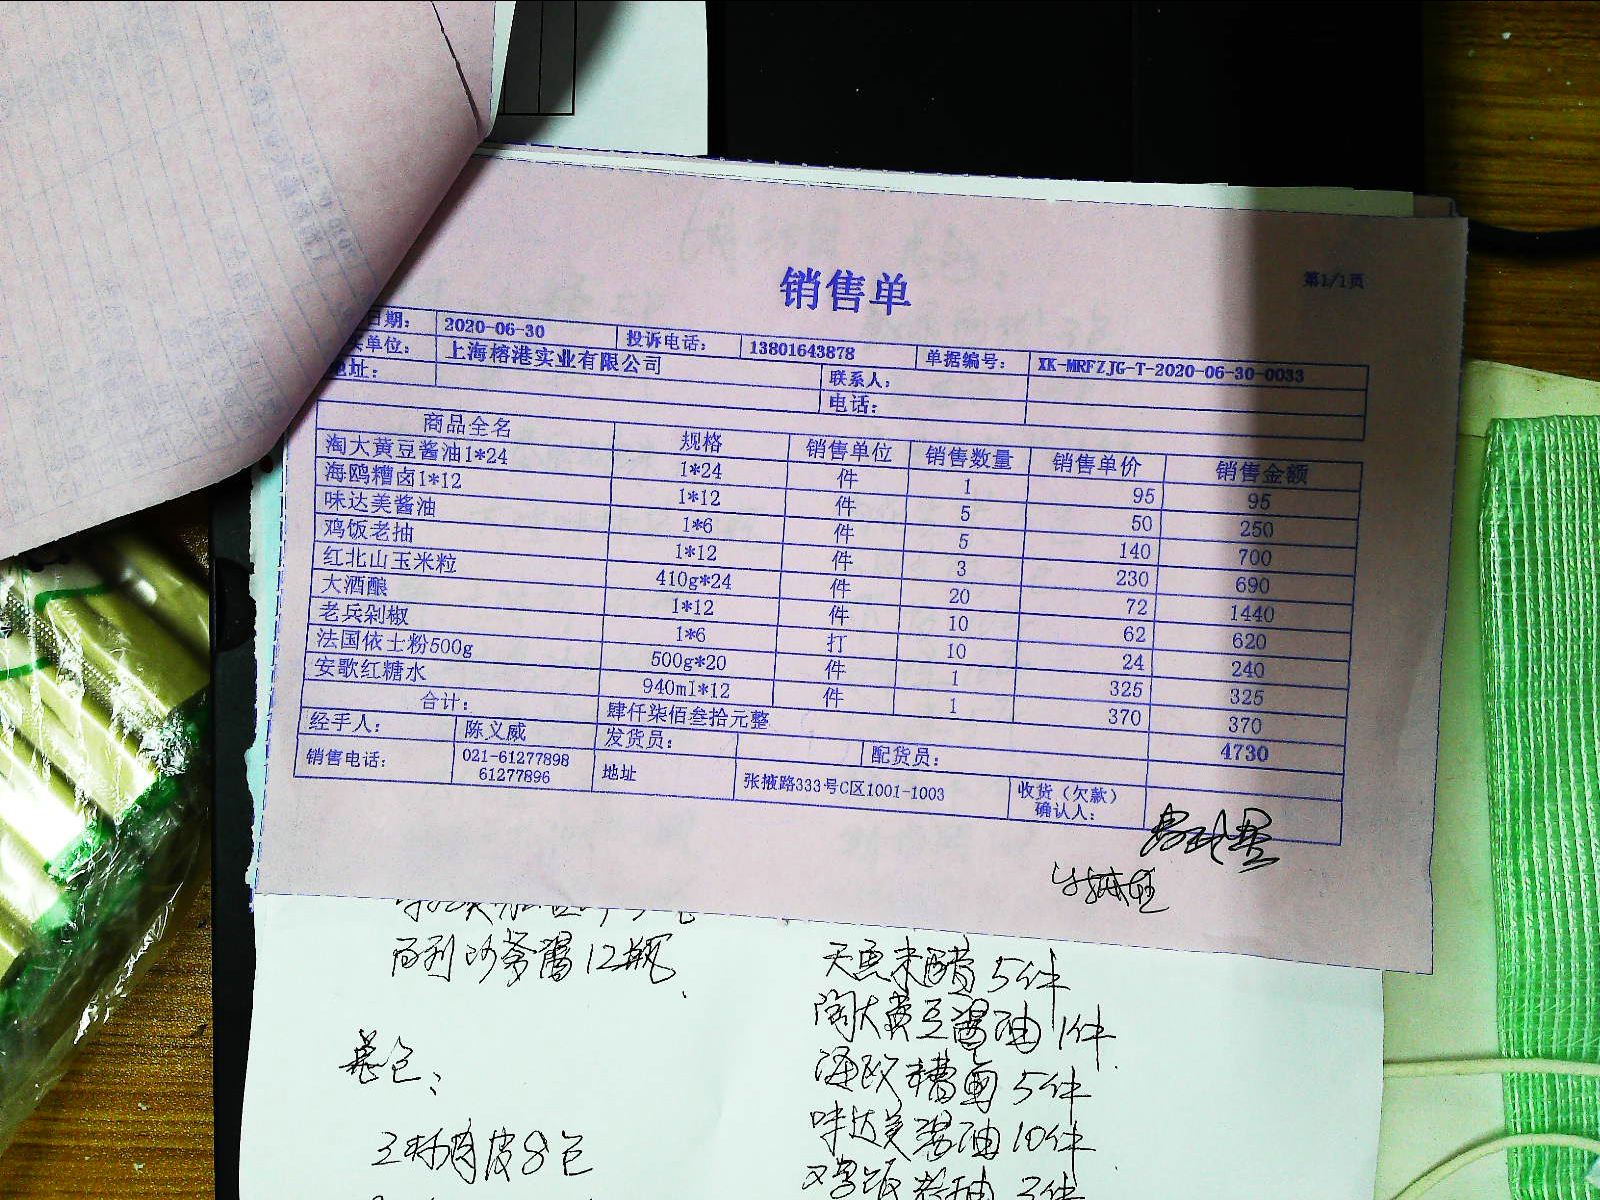 销售单
第1/1页
日期： 2020-06-30 投诉电话： 13801643878 单据编号： XK-MRFZJG-T-2020-06-30-0033
单位： 上海榕港实业有限公司 联系人：
地址： 电话：
商品全名 规格 销售单位 销售数量 销售单价 销售金额
淘大黄豆酱油1*24 1*24 件 1 95 95
海鸥糟卤1*12 1*12 件 5 50 250
味达美酱油 1*6 件 5 140 700
鸡饭老抽 1*12 件 3 230 690
红北山玉米粒 410g*24 件 20 72 1440
大酒酿 1*12 件 10 62 620
老兵剁椒 1*6 打 10 24 240
法国依士粉500g 500g*20 件 1 325 325
安歌红糖水 940ml*12 件 1 370 370
合计： 肆仟柒佰叁拾元整 4730
经手人： 陈义威 发货员： 配货员：
销售电话： 021-61277898 61277896 地址 张掖路333号C区1001-1003 收货（欠款）确认人：
百利沙爹酱12瓶
米醋5件
陶大黄豆酱油1件
海欧糟卤5件
味达美酱油10件
鸡饭老抽3件
皮8包